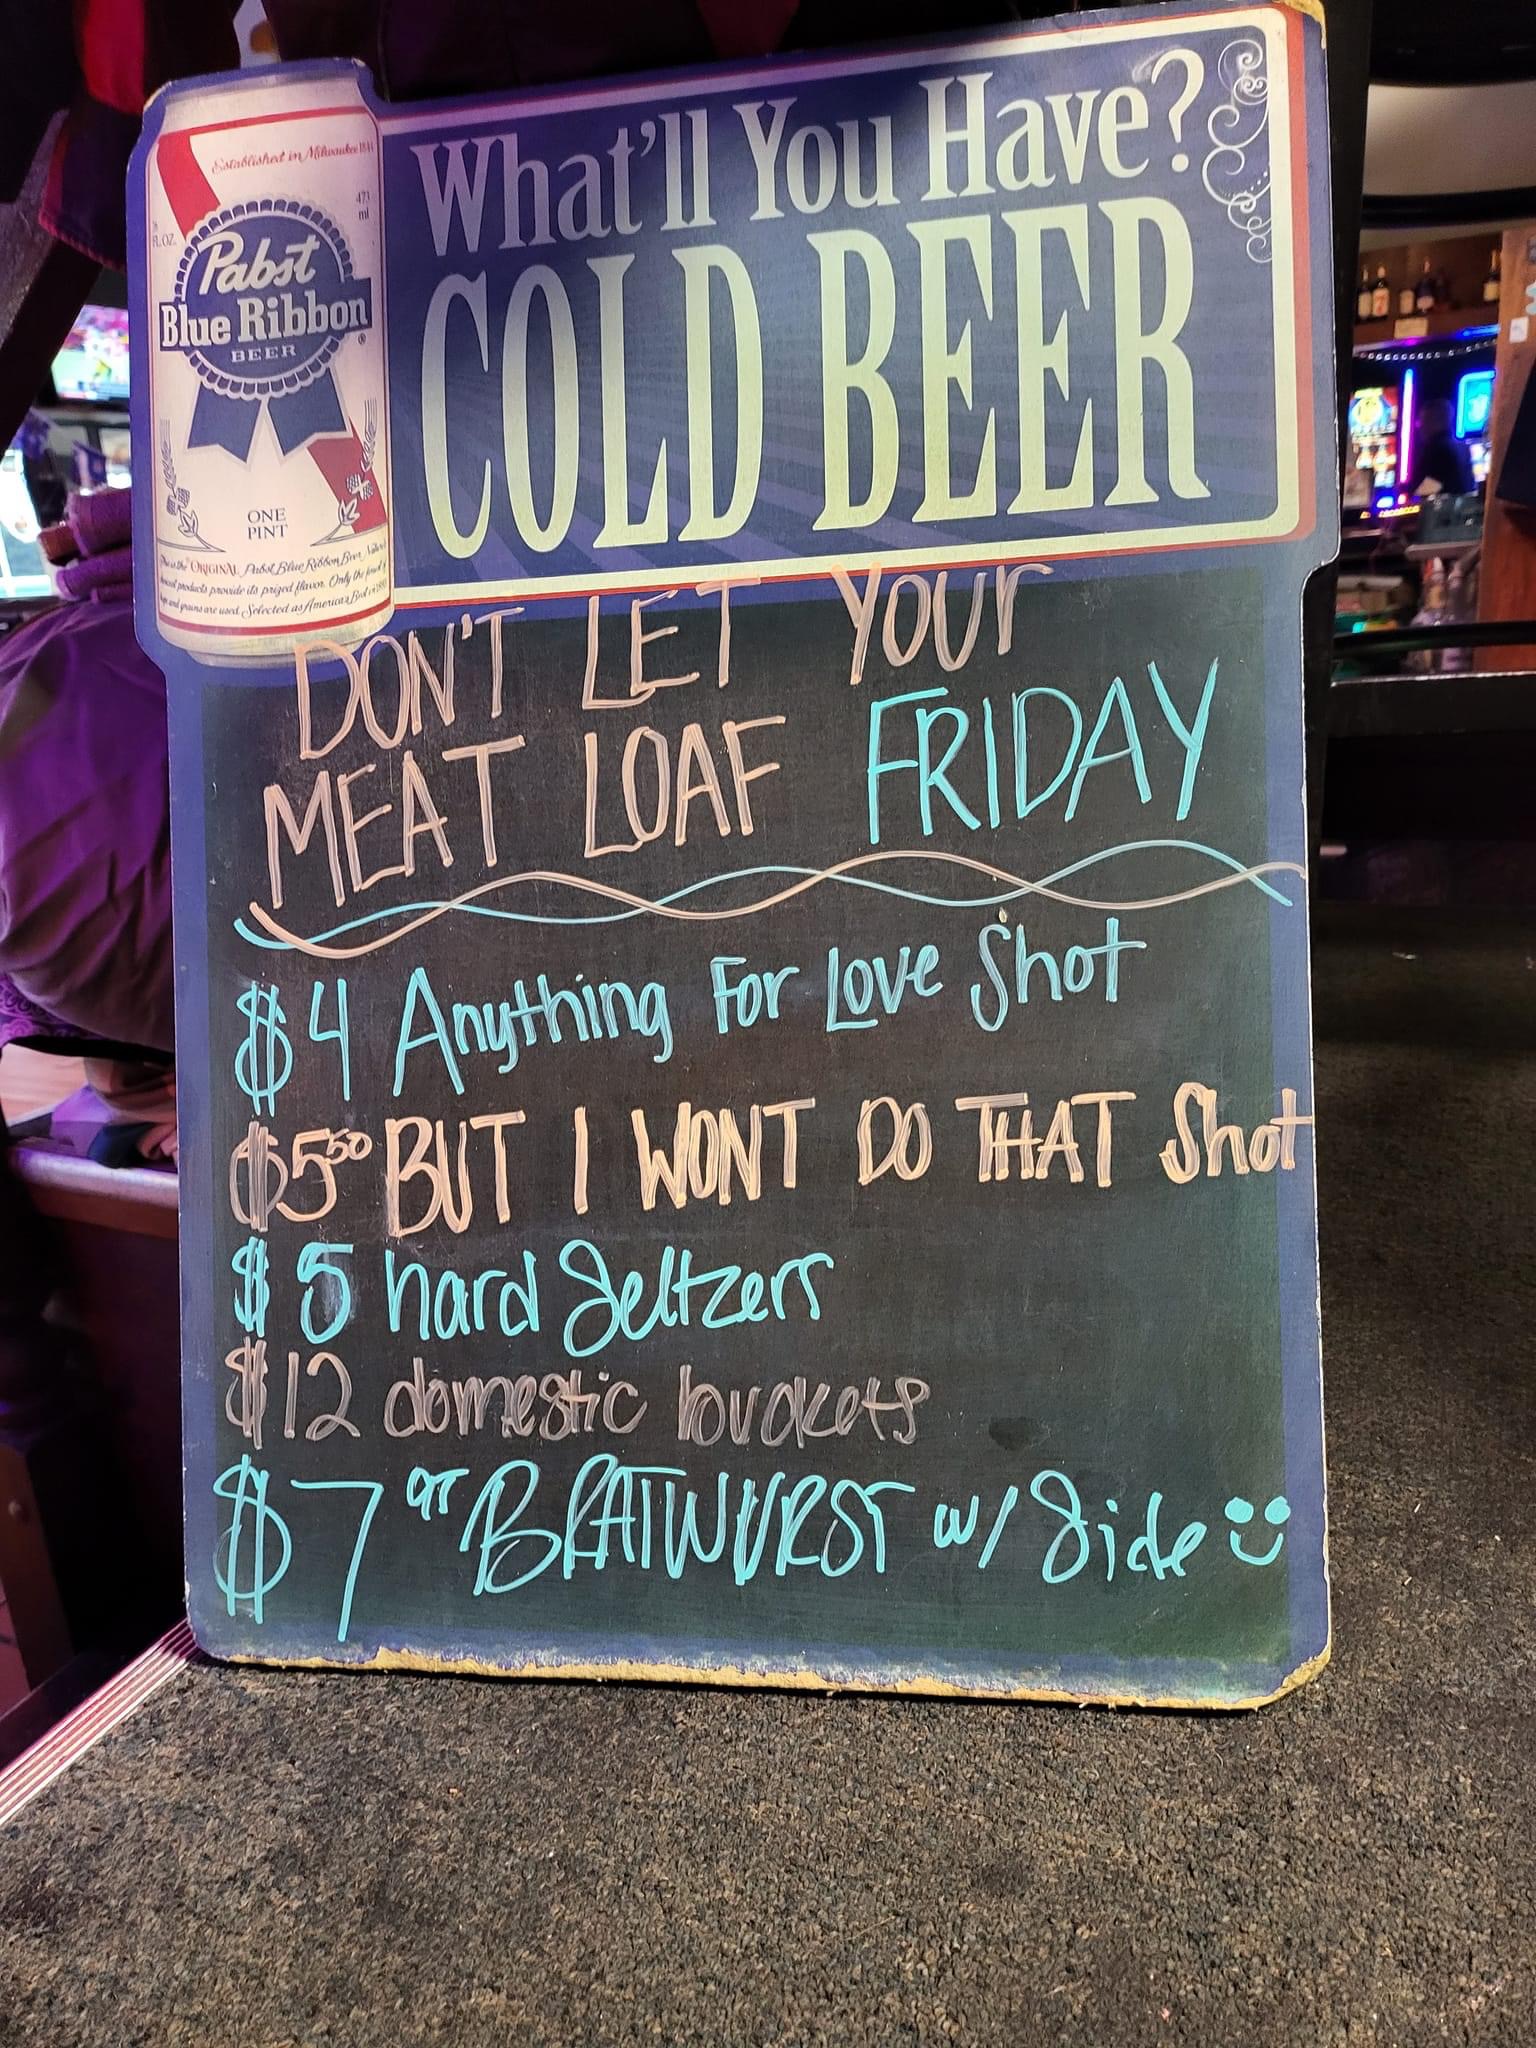 Established in Milwaukee 1844
473 ml
FL. OZ.
Pabst
Blue Ribbon
BEER
®
ONE
PINT
This is the ORIGINAL Pabst Blue Ribbon Beer. Nature's
choicest products provide its prized flavor. Only the finest of
hops and grains are used. Selected as America's Best in 1893
What'll You Have?
COLD BEER
DON'T LET YOUR
MEAT LOAF FRIDAY
$4 Anything For Love Shot
$5.50 BUT I WONT DO THAT Shot
$5 hard Seltzers
$12 domestic buckets
$7 BRATWURST w/ Side